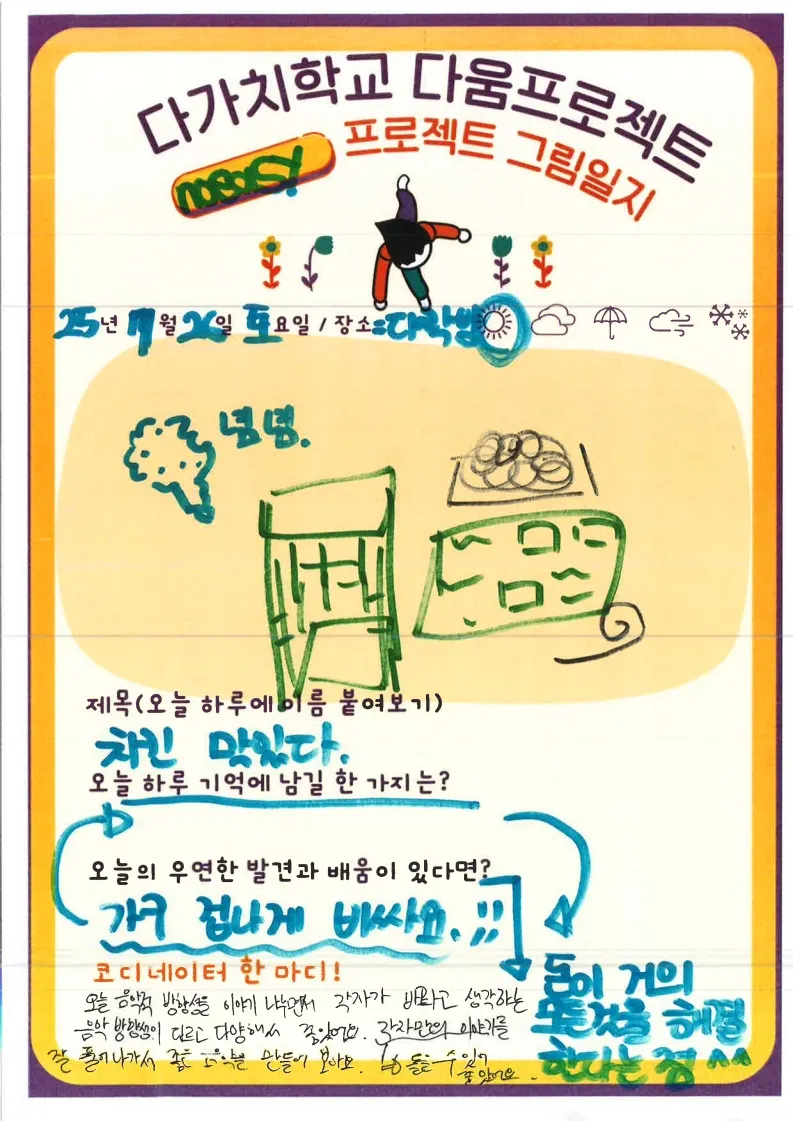 다가치학교 다움프로젝트
프로젝트 그림일지
25년 7월 26일 토요일 / 장소 : 다락방
념념.
제목(오늘 하루에 이름 붙여보기)
치킨 맛있다.
오늘 하루 기억에 남길 한 가지는?
오늘의 우연한 발견과 배움이 있다면?
가구 겁나게 비싸요.
돈이 거의
모든것을 해결
한다는 점 ^^
코디네이터 한 마디!
오늘 음악적 방향성을 이야기 나누면서 각자가 바라고 생각하는
음악 방향성이 다르고 다양해서 좋았어요. 각자만의 이야기를
잘 풀어나가서 좋은 음악을 만들어 보아요. 들을 수 있어
좋았어요.